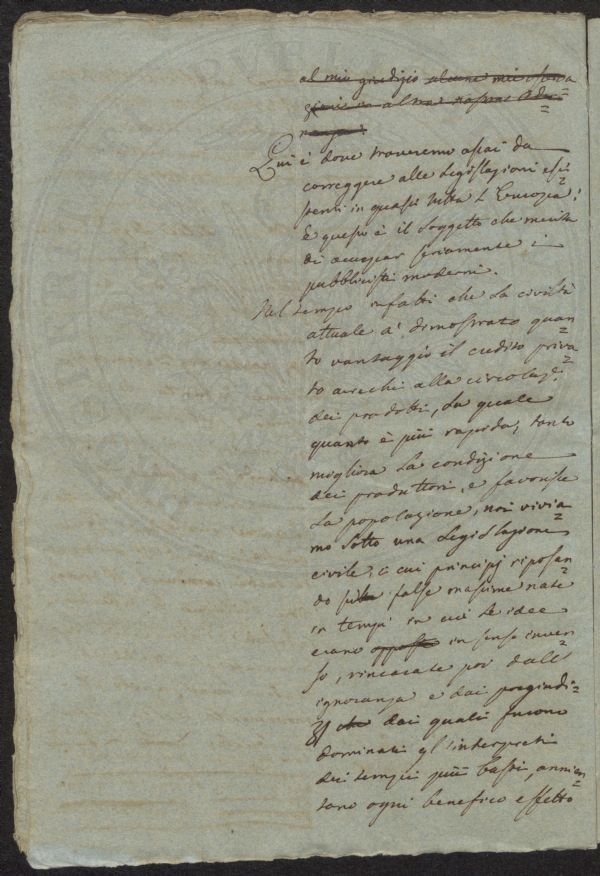 al mio giudizio alcune mie
Qui è dove troveremo assai da
correggere alle Legislazioni esi=
stenti in quasi tutta l'Europa;
e questo è il soggetto che merita
di occupar seriamente i
pubblicisti moderni.
Nel tempo infatti che la civiltà
attuale à dimostrato quan=
to vantaggio il credito priva=
to arrechi alla circolaz.e
dei prodotti, la quale
quanto è più rapida, tanto
migliora la condizione
dei produttori, e favorisce
la popolazione, noi vivia=
mo sotto una Legislazione
civile, i cui principj riposan=
do su false massime nate
in tempi in cui le idee
erano opposte in senso inver=
so, rincarate poi dall'
ignoranza e dai pregiudi=
zj che dai quali furono
dominati gl'interpreti
dei tempi più bassi, annien=
tano ogni benefico effetto